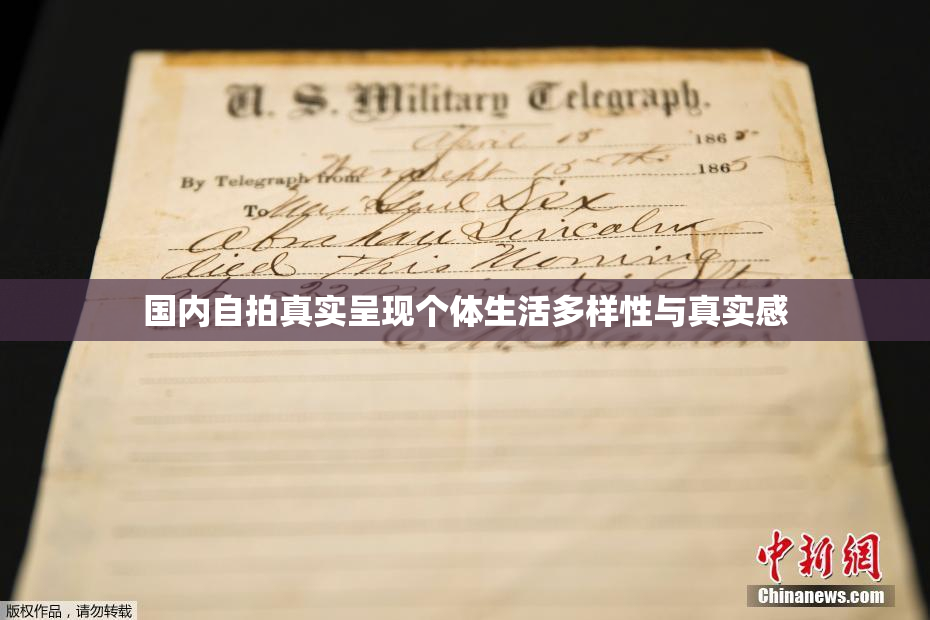 U. S. Military Telegraph.
April 15 1865
By Telegraph from War Dept 15th 1865
To Maj Genl Dix
Abraham Lincoln
died this Morning
22 minutes after
国内自拍真实呈现个体生活多样性与真实感
E. M. Stanton
中新網
Chinanews.com
版权作品，请勿转载